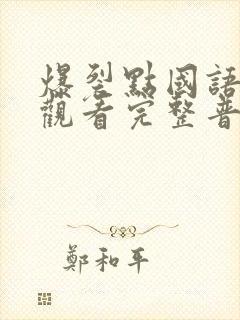 爆裂點國語
觀看完整普
鄭和平